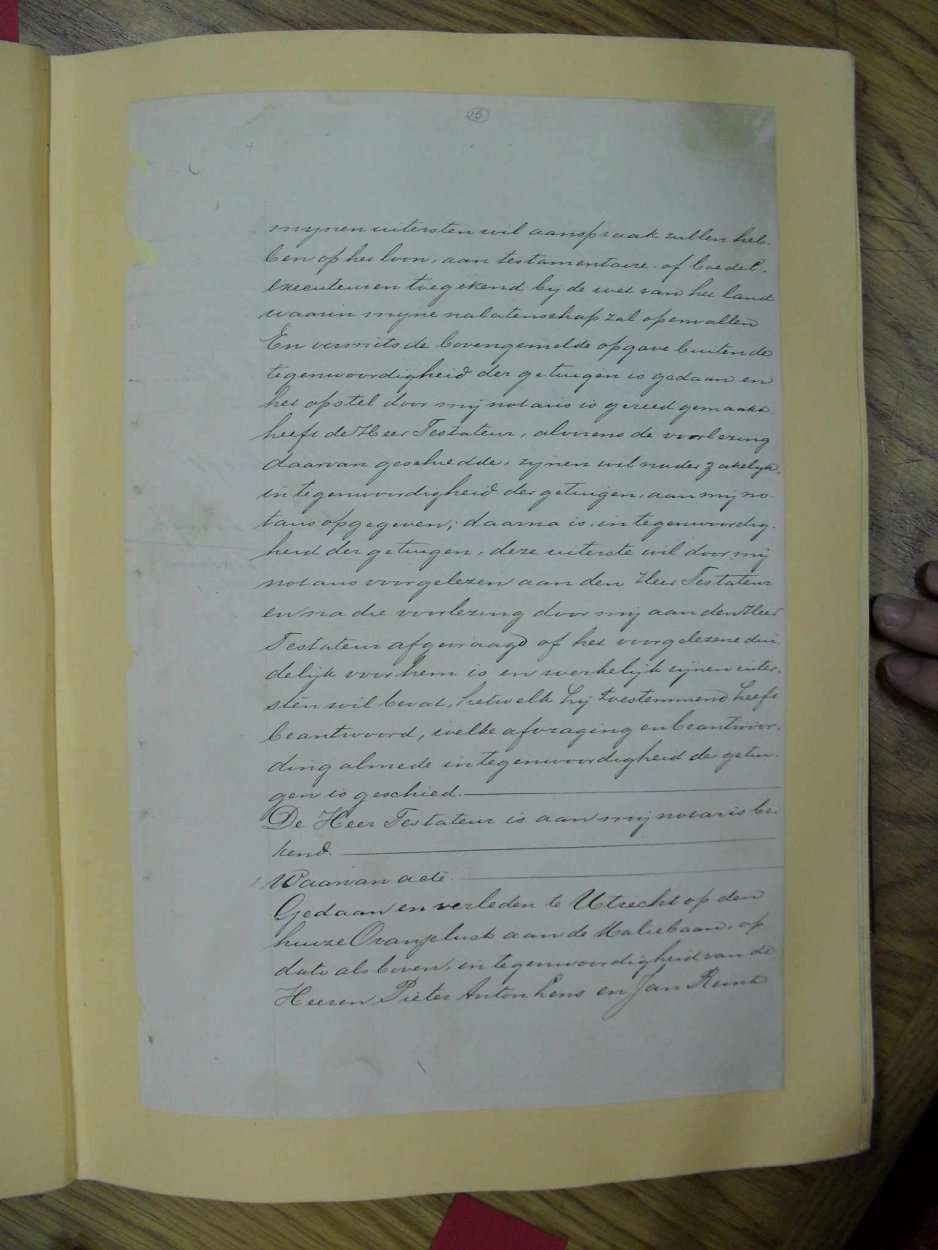 15
mijnen uitersten wil aanspraak zullen heb-
ben op het loon, aan testamentaire of boedel-
executeuren toegekend bij de wet van het land
waarin mijne nalatenschap zal openvallen
En vermits de bovengemelde opgave buiten de
tegenwoordigheid der getuigen is gedaan en
het opstel door mij notaris is gereed gemaakt
heeft de Heer Testateur, alvorens de voorlezing
daarvan geschiedde, zijnen wil nader zakelijk,
in tegenwoordigheid der getuigen, aan mij no-
taris opgegeven; daarna is, in tegenwoordig-
heid der getuigen, deze uiterste wil door mij
notaris voorgelezen aan den Heer Testateur
en na die voorlezing door mij aan den Heer
Testateur afgevraagd of het voorgelezene dui-
delijk voor hem is en werkelijk zijnen uiter-
sten wil bevat, hetwelk hij toestemmend heeft
beantwoord, welke afvraging en beantwoor-
ding almede in tegenwoordigheid de getui-
gen is geschied.
De Heer Testateur is aan mij notaris be-
kend.
Waarvan acte
Gedaan en verleden te Utrecht op den
huize Oranjelust aan de Maliebaan, op
dato als boven, in tegenwoordigheid van de
Heeren Pieter Anton Lens en Jan